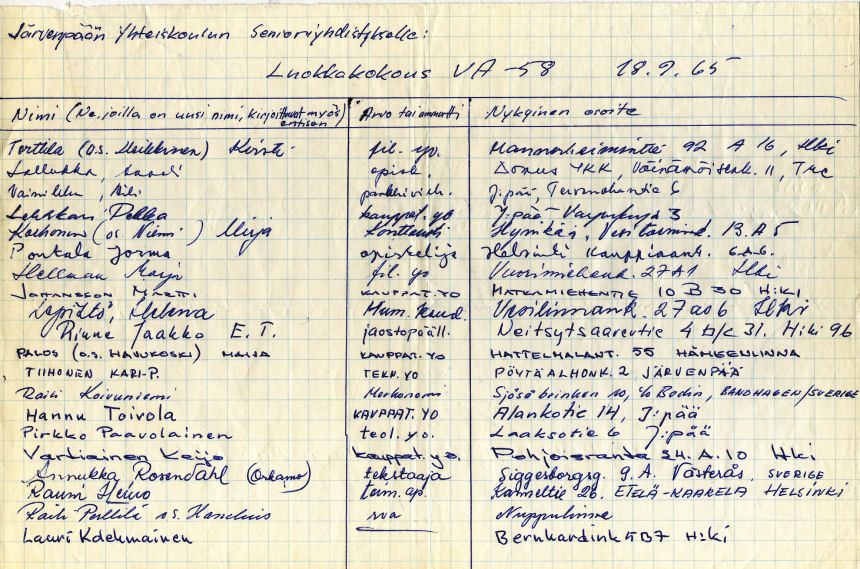 Järvenpään Yhteiskoulun Seniorviyhdistykselle:
Luokkakokous VA-58 18.9.65
Nimi (Ne, joilla on uusi nimi, kirjoittavat myös entisen Arvo tai ammatti Nykyinen osoite
Terttila (o.s. Meikkinen) Kirsti fil. yo. Mannerheimintie 92 A 16, Hki
opisk. Domus YKK, 11,
pankkivirk. J:pää, 6
Lehkkari, Pekka kauppat. yo J:pää 3
Korhonen (os. Niemi) Mirja Konttoristi Hyvinkää, 13. A 5
Ponkala Jorma opiskelija Helsinki Kauppiaank. 6.A.6.
Hellman Marja fil. yo Vuorimiehenk. 27A1 Hki
JOHANSSON MARTTI KAUPPAT. YO MATKAMIEHENTIE 10 B 30 H:KI
Lepistö, Helena Hum. kand. Vesilinnank. 27 as 6 Hki
Rinne Jaakko E. T. jaostopääll. Neitsytsaarentie 4 b/c 31. H:ki 96
PALOS (O.S. HAUUKOSKI) MAIJA KAUPPAT. YO HATTELMALANT. 55 HÄMEENLINNA
TIIHONEN KARI-P. TEKN. YO PÖYTÄALHONK. 2 JÄRVENPÄÄ
Raili Koivuniemi Merkonomi Sjösabrinken 10, c/o Bodin, BANDHAGEN/SVERIGE
Hannu Toivola KAUPPAT. YO Alankotie 14, J:pää
Pirkko Paavolainen teol. yo. Laaksotie 6 J:pää
Vartiainen Keijo kauppat. yo. Pohjoisranta 24. A. 10 Hki
Annukka Rosendahl (Orkamo) tekstaaja Siggesborgsg. 9. A. Västerås, SVERIGE
Raum Heimo tom. ap. Kanneltie 20. ETELÄ-KAARELA HELSINKI
Raili Perttilä o.s. rva Nuppulinna
Lauri Kdehmainen Bernhardink 5B7 H:ki